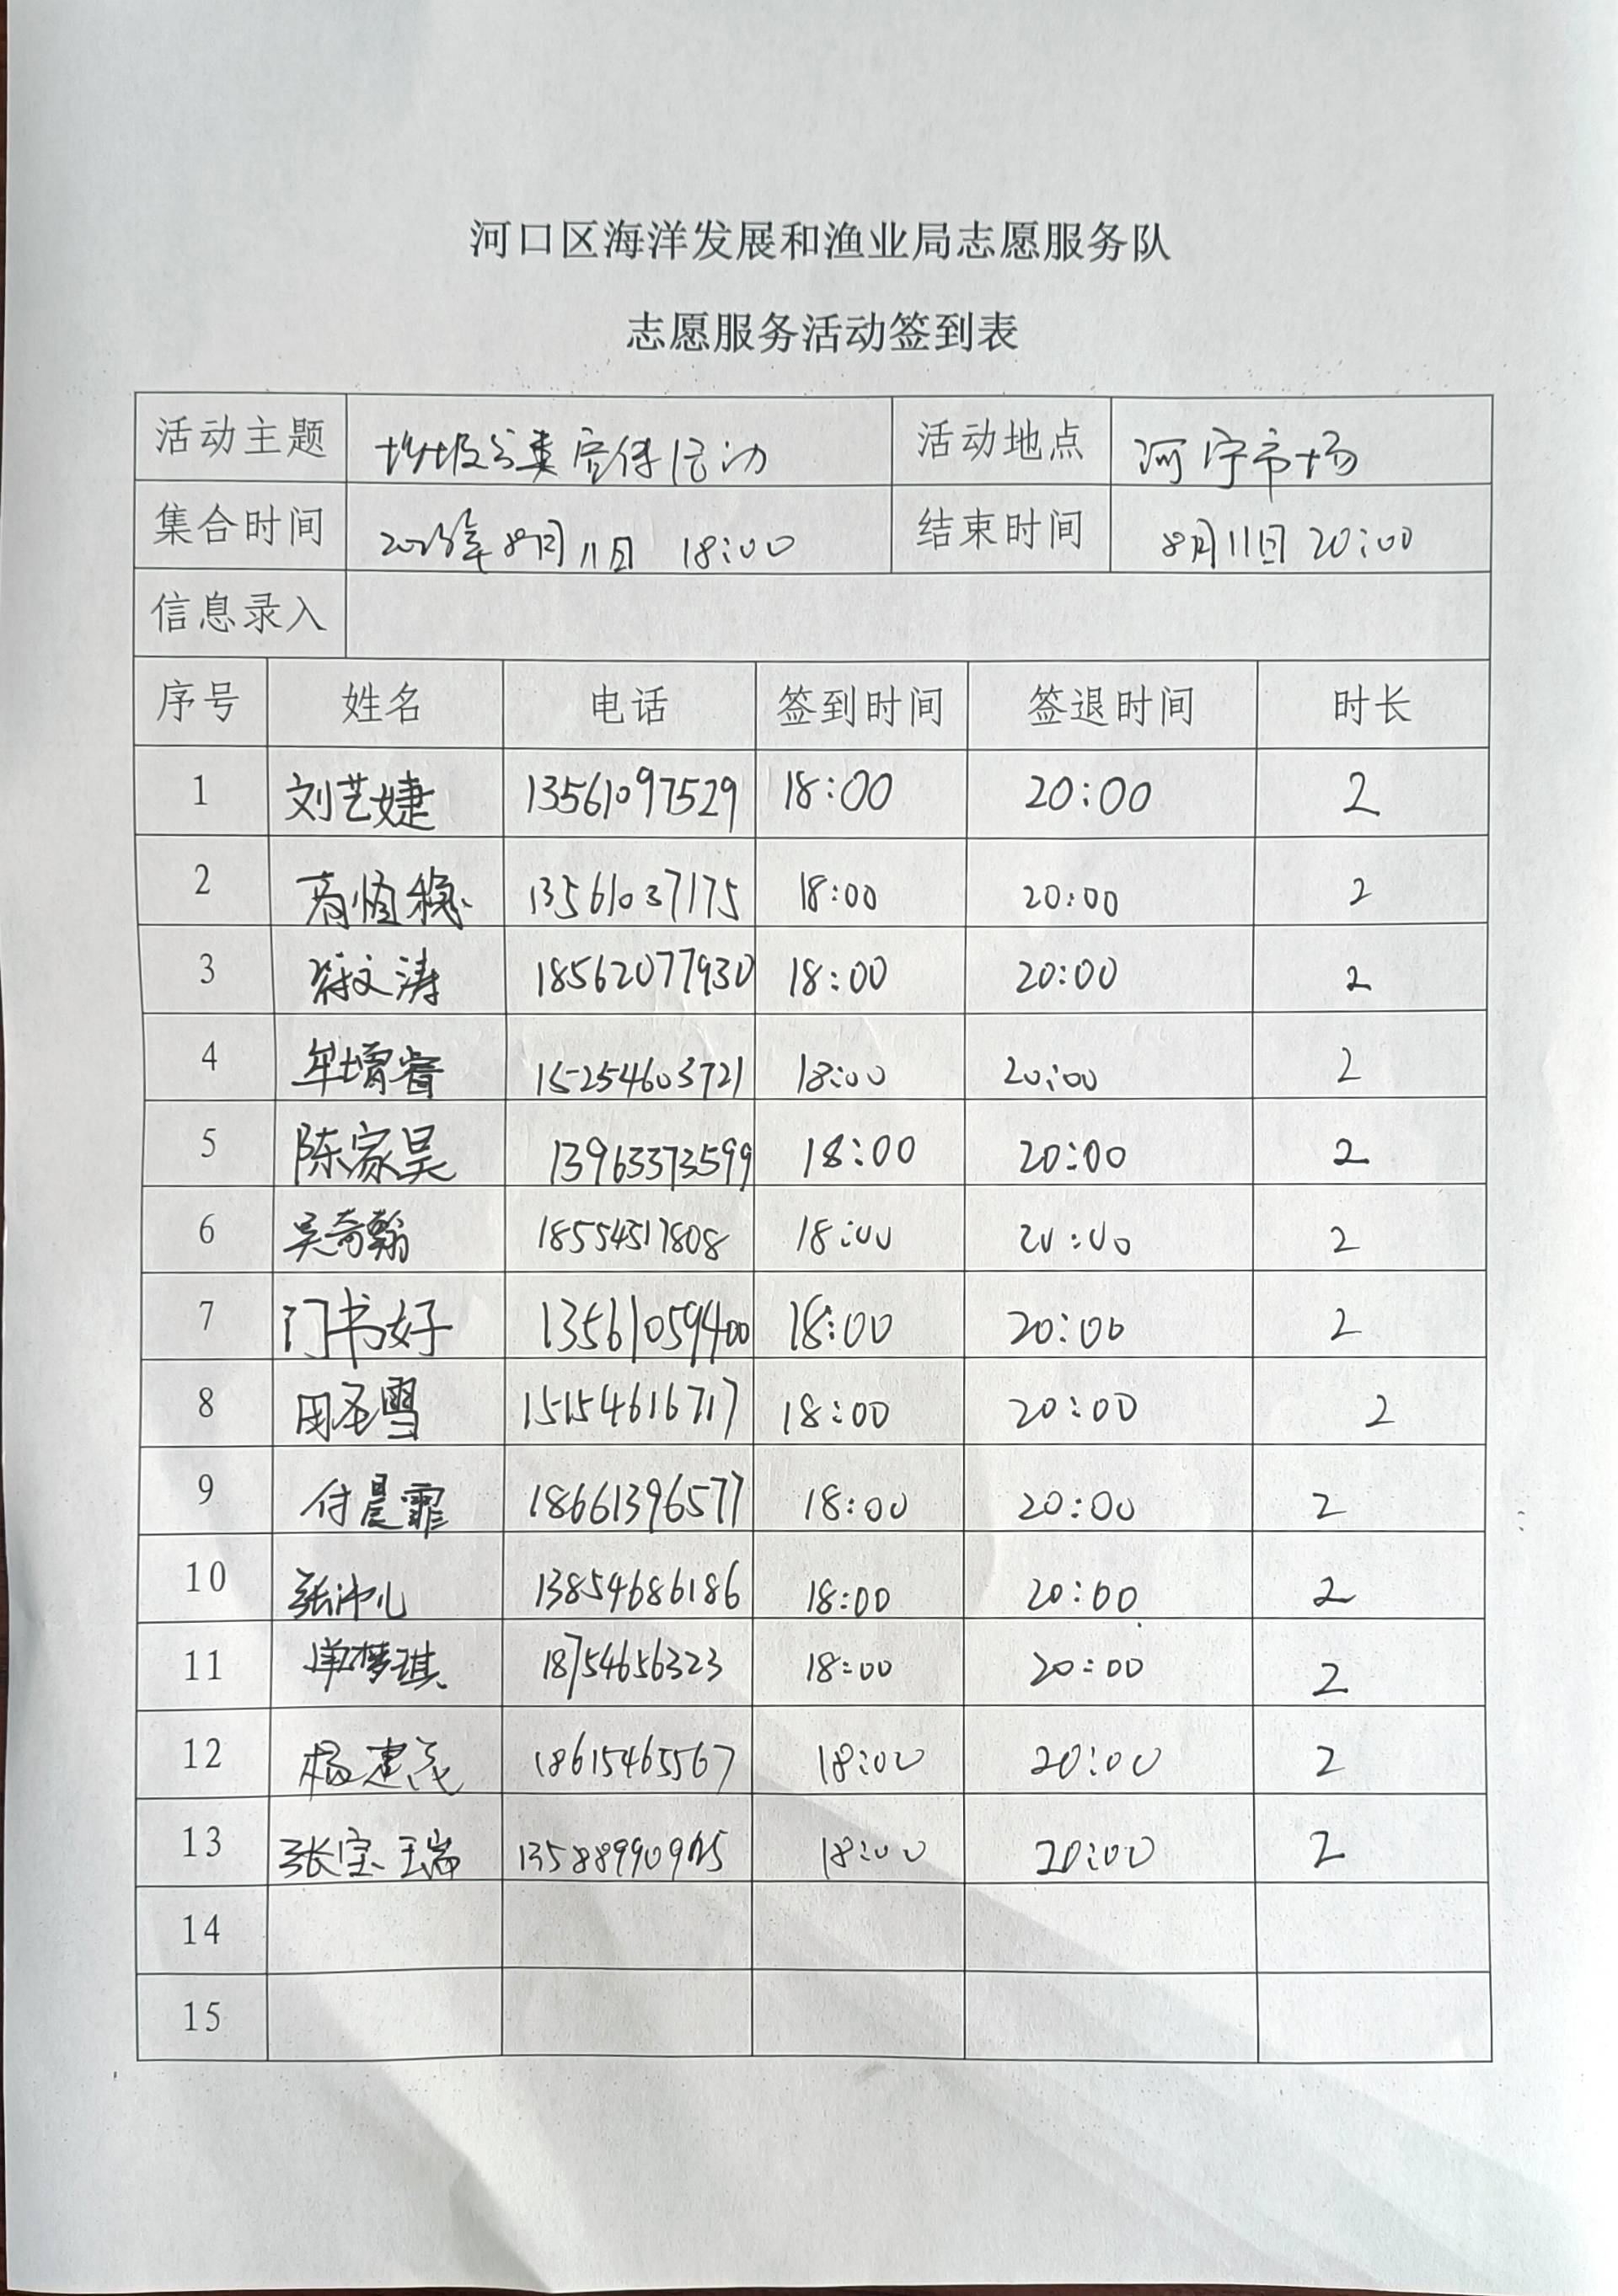 河口区海洋发展和渔业局志愿服务队
志愿服务活动签到表
活动主题 垃圾分类宣传活动 活动地点 河宁市场
集合时间 2023年8月11日 18:00 结束时间 8月11日 20:00
信息录入
序号 姓名 电话 签到时间 签退时间 时长
1 刘艺婕 13561097529 18:00 20:00 2
2 13561037175 18:00 20:00 2
3 徐文涛 18562077930 18:00 20:00 2
4 牟增睿 15254603721 18:00 20:00 2
5 陈家昊 13963373599 18:00 20:00 2
6 吴奇翰 18554517808 18:00 20:00 2
7 门书好 13561059400 18:00 20:00 2
8 田圣雪 15154616717 18:00 20:00 2
9 付晨霏 18661396577 18:00 20:00 2
10 张沛儿 13854686186 18:00 20:00 2
11 单梦琪 18754656323 18:00 20:00 2
12 杨建茂 18615465567 18:00 20:00 2
13 张宝瑞 18:00 20:00 2
14
15